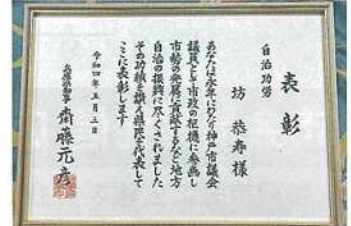 表彰
自治功労
坊 恭寿 様
あなたは多年にわたり神戸市議会
議員として市政の枢機に参画し
市勢の発展に貢献するなど地方
自治の振興に尽くされました
その功績を讃え県民を代表して
ここに表彰します
令和四年五月三日
兵庫県知事 齋藤元彦